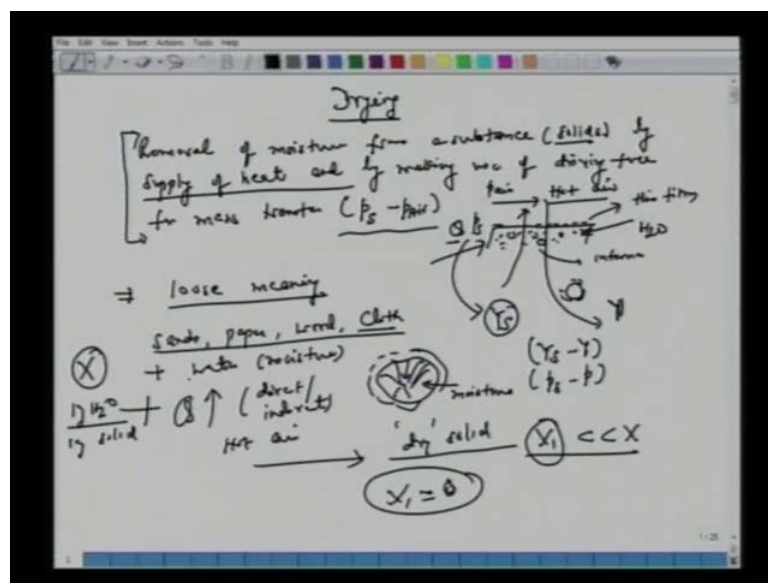 File Edit View Insert Actions Tools Help
Drying
Removal of moisture from a substance (solids) by
supply of heat and by making use of driving force
for mass transfer (ps - pair)
pair Hot air
thin film
Q ps
H2O
⇒ loose meaning
Ys
Y
sands, paper, wood, cloth
+ water (moisture)
(Ys - Y)
(ps - p)
X
moisture
1g H2O + Q ↑ (direct/
1g solid indirect)
Hot air
'dry' solid X1 << X
X1 = 0
1/25